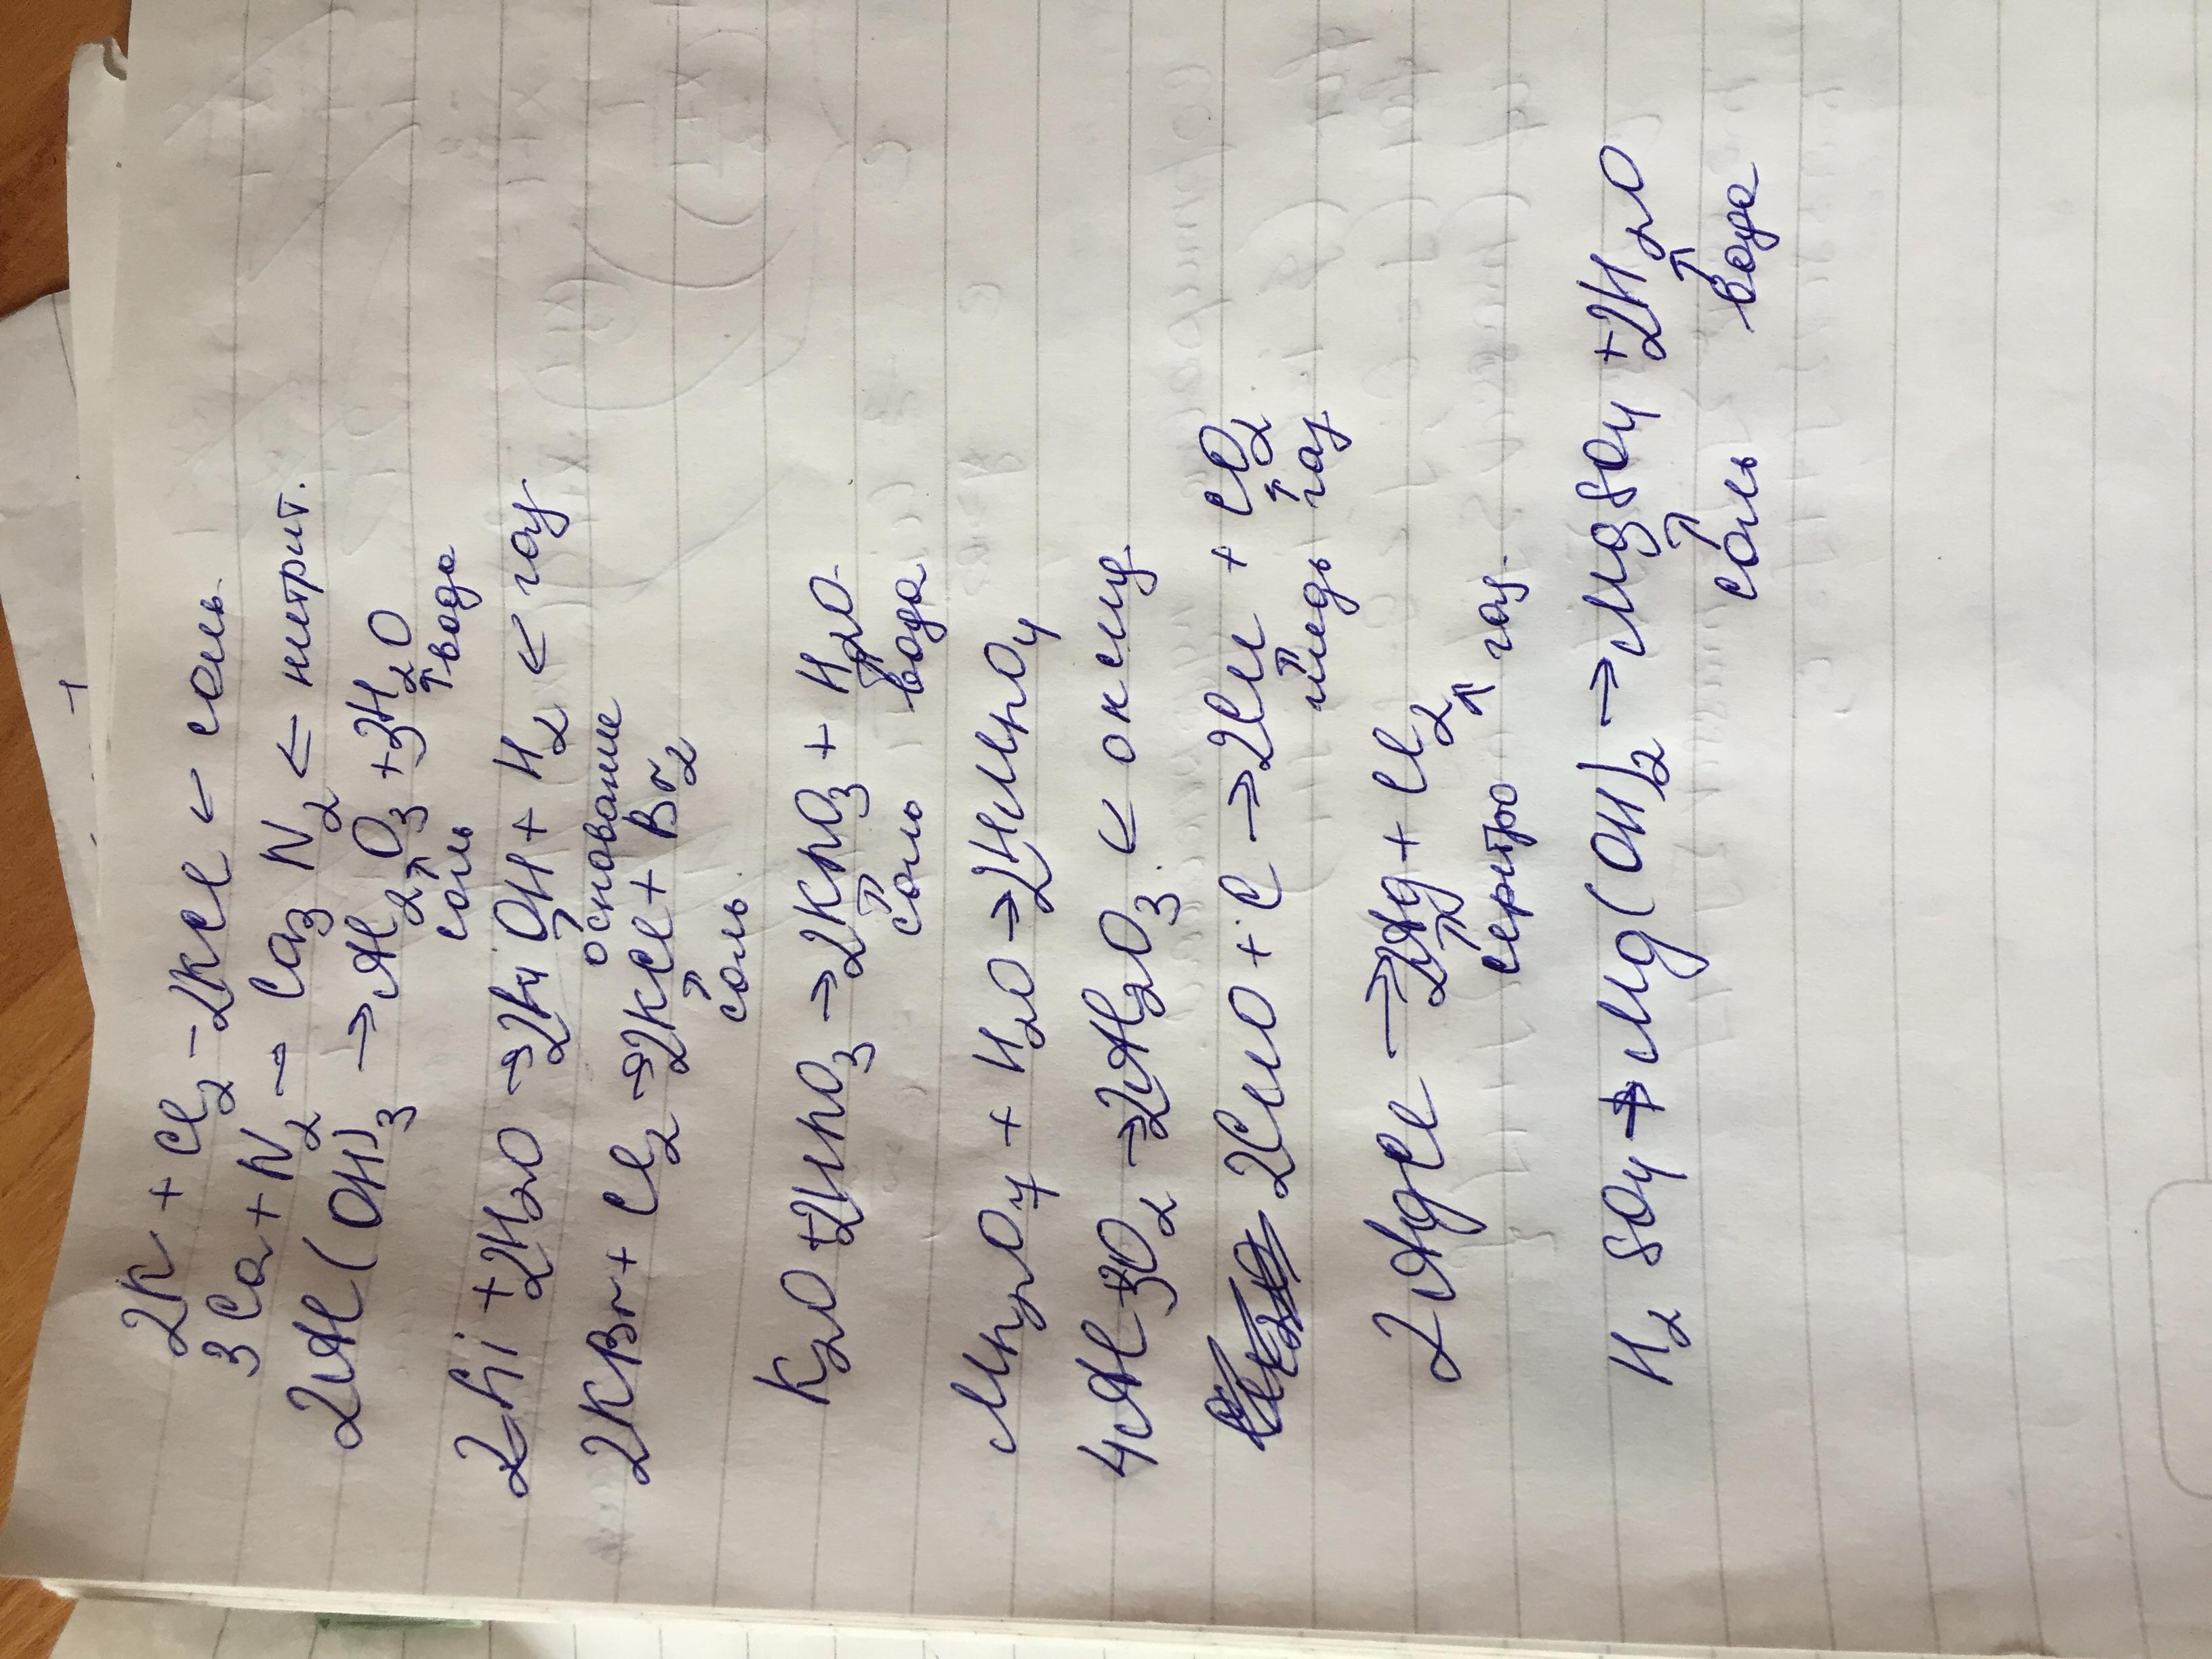 2K + Cl2 → 2KCl ← соль.
3Ca + N2 → Ca3 N2 ← нитрит.
2Al(OH)3 → Al2O3 + 3H2O
соль ↑ вода
2Li + 2H2O → 2Li OH + H2 ← газ
основание
2KBr + Cl2 → 2KCl + Br2
соль.
K2O + 2HNO3 → 2KNO3 + H2O.
соль вода
Mn2O7 + H2O → 2HMnO4
4Al + 3O2 → 2Al2O3. ← оксид.
2CuO + C → 2Cu + CO2
медь газ.
2AgCl → 2Ag + Cl2
серебро газ.
H2 SO4 + Mg(OH)2 → MgSO4 + 2H2O
соль вода